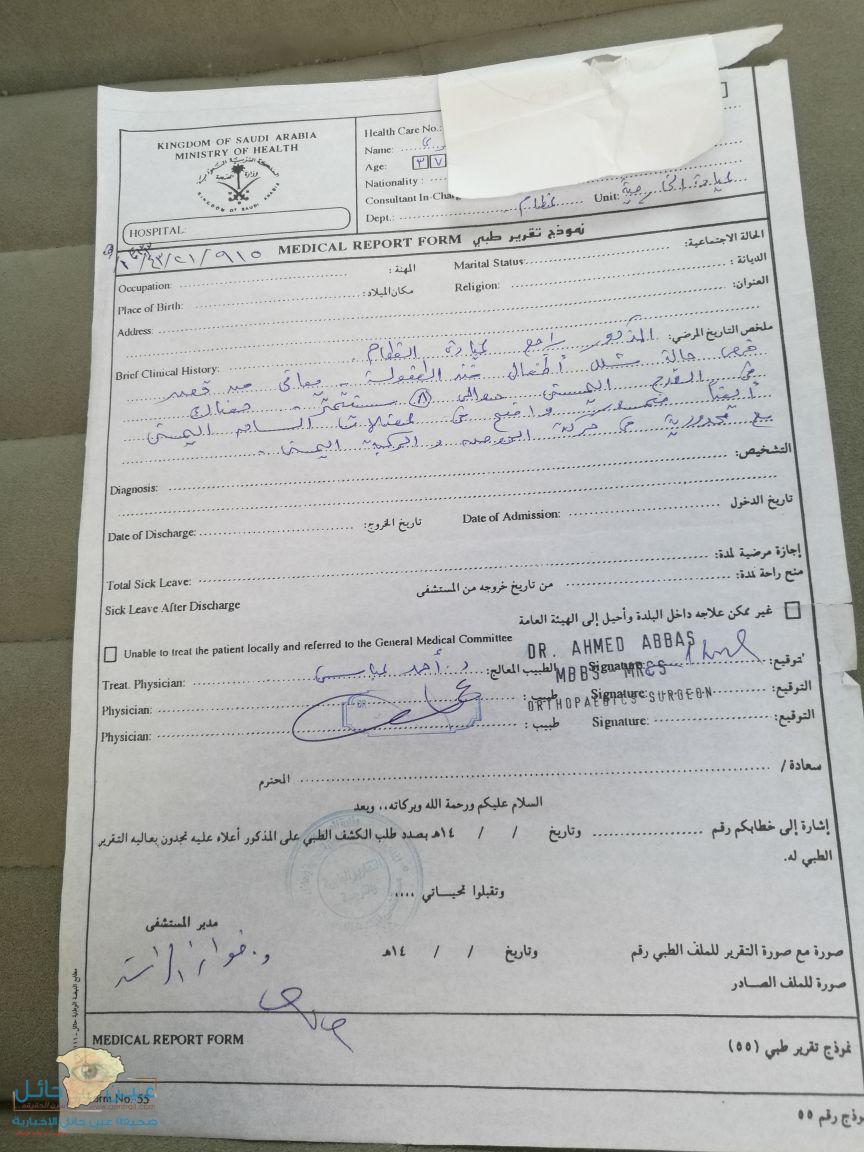 KINGDOM OF SAUDI ARABIA
MINISTRY OF HEALTH
HOSPITAL:
Health Care No.:
Name:
Age: ٣٧
Nationality :
Consultant In-Charg
Dept.: عظام Unit: عيادة الخارجية
٩١٥/٢١/٤٣
MEDICAL REPORT FORM نموذج تقرير طبي
Occupation: المهنة: Marital Status: الحالة الاجتماعية:
Place of Birth: مكان الميلاد: Religion: الديانة :
Address: العنوان:
Brief Clinical History: ملخص التاريخ المرضي: المذكور راجع عيادة العظام
حالة شلل أطفال منذ الطفولة - يعاني من قصر
في القدم اليمنى حوالي (٨) سنتمتر - هناك
أيضا ضمور واضح في عضلات الساق اليمنى
مع محدودية في حركة الحوض و الركبة اليمنى .
Diagnosis: التشخيص:
Date of Discharge: تاريخ الخروج: Date of Admission: تاريخ الدخول
Total Sick Leave: إجازة مرضية لمدة:
Sick Leave After Discharge من تاريخ خروجه من المستشفى منح راحة لمدة:
غير ممكن علاجه داخل البلدة وأحيل إلى الهيئة العامة
Unable to treat the patient locally and referred to the General Medical Committee
DR. AHMED ABBAS
MBBS MRCS
ORTHOPAEDICS SURGEON
Treat. Physician: د. أحمد عباس الطبيب المعالج: Signature: التوقيع:
Physician: طبيب : Signature: التوقيع:
Physician: طبيب : Signature: التوقيع:
سعادة / المحترم
السلام عليكم ورحمة الله وبركاته،، وبعد
إشارة إلى خطابكم رقم وتاريخ / / ١٤هـ بصدد طلب الكشف الطبي على المذكور أعلاه عليه تجدون بعاليه التقرير
الطبي له.
وتقبلوا تحياتي ....
مدير المستشفى
صورة مع صورة التقرير للملف الطبي رقم وتاريخ / / ١٤هـ
صورة للملف الصادر
MEDICAL REPORT FORM نموذج تقرير طبي (٥٥)
orm No. 55 نموذج رقم ٥٥
عين حائل
صحيفة عين حائل الاخبارية